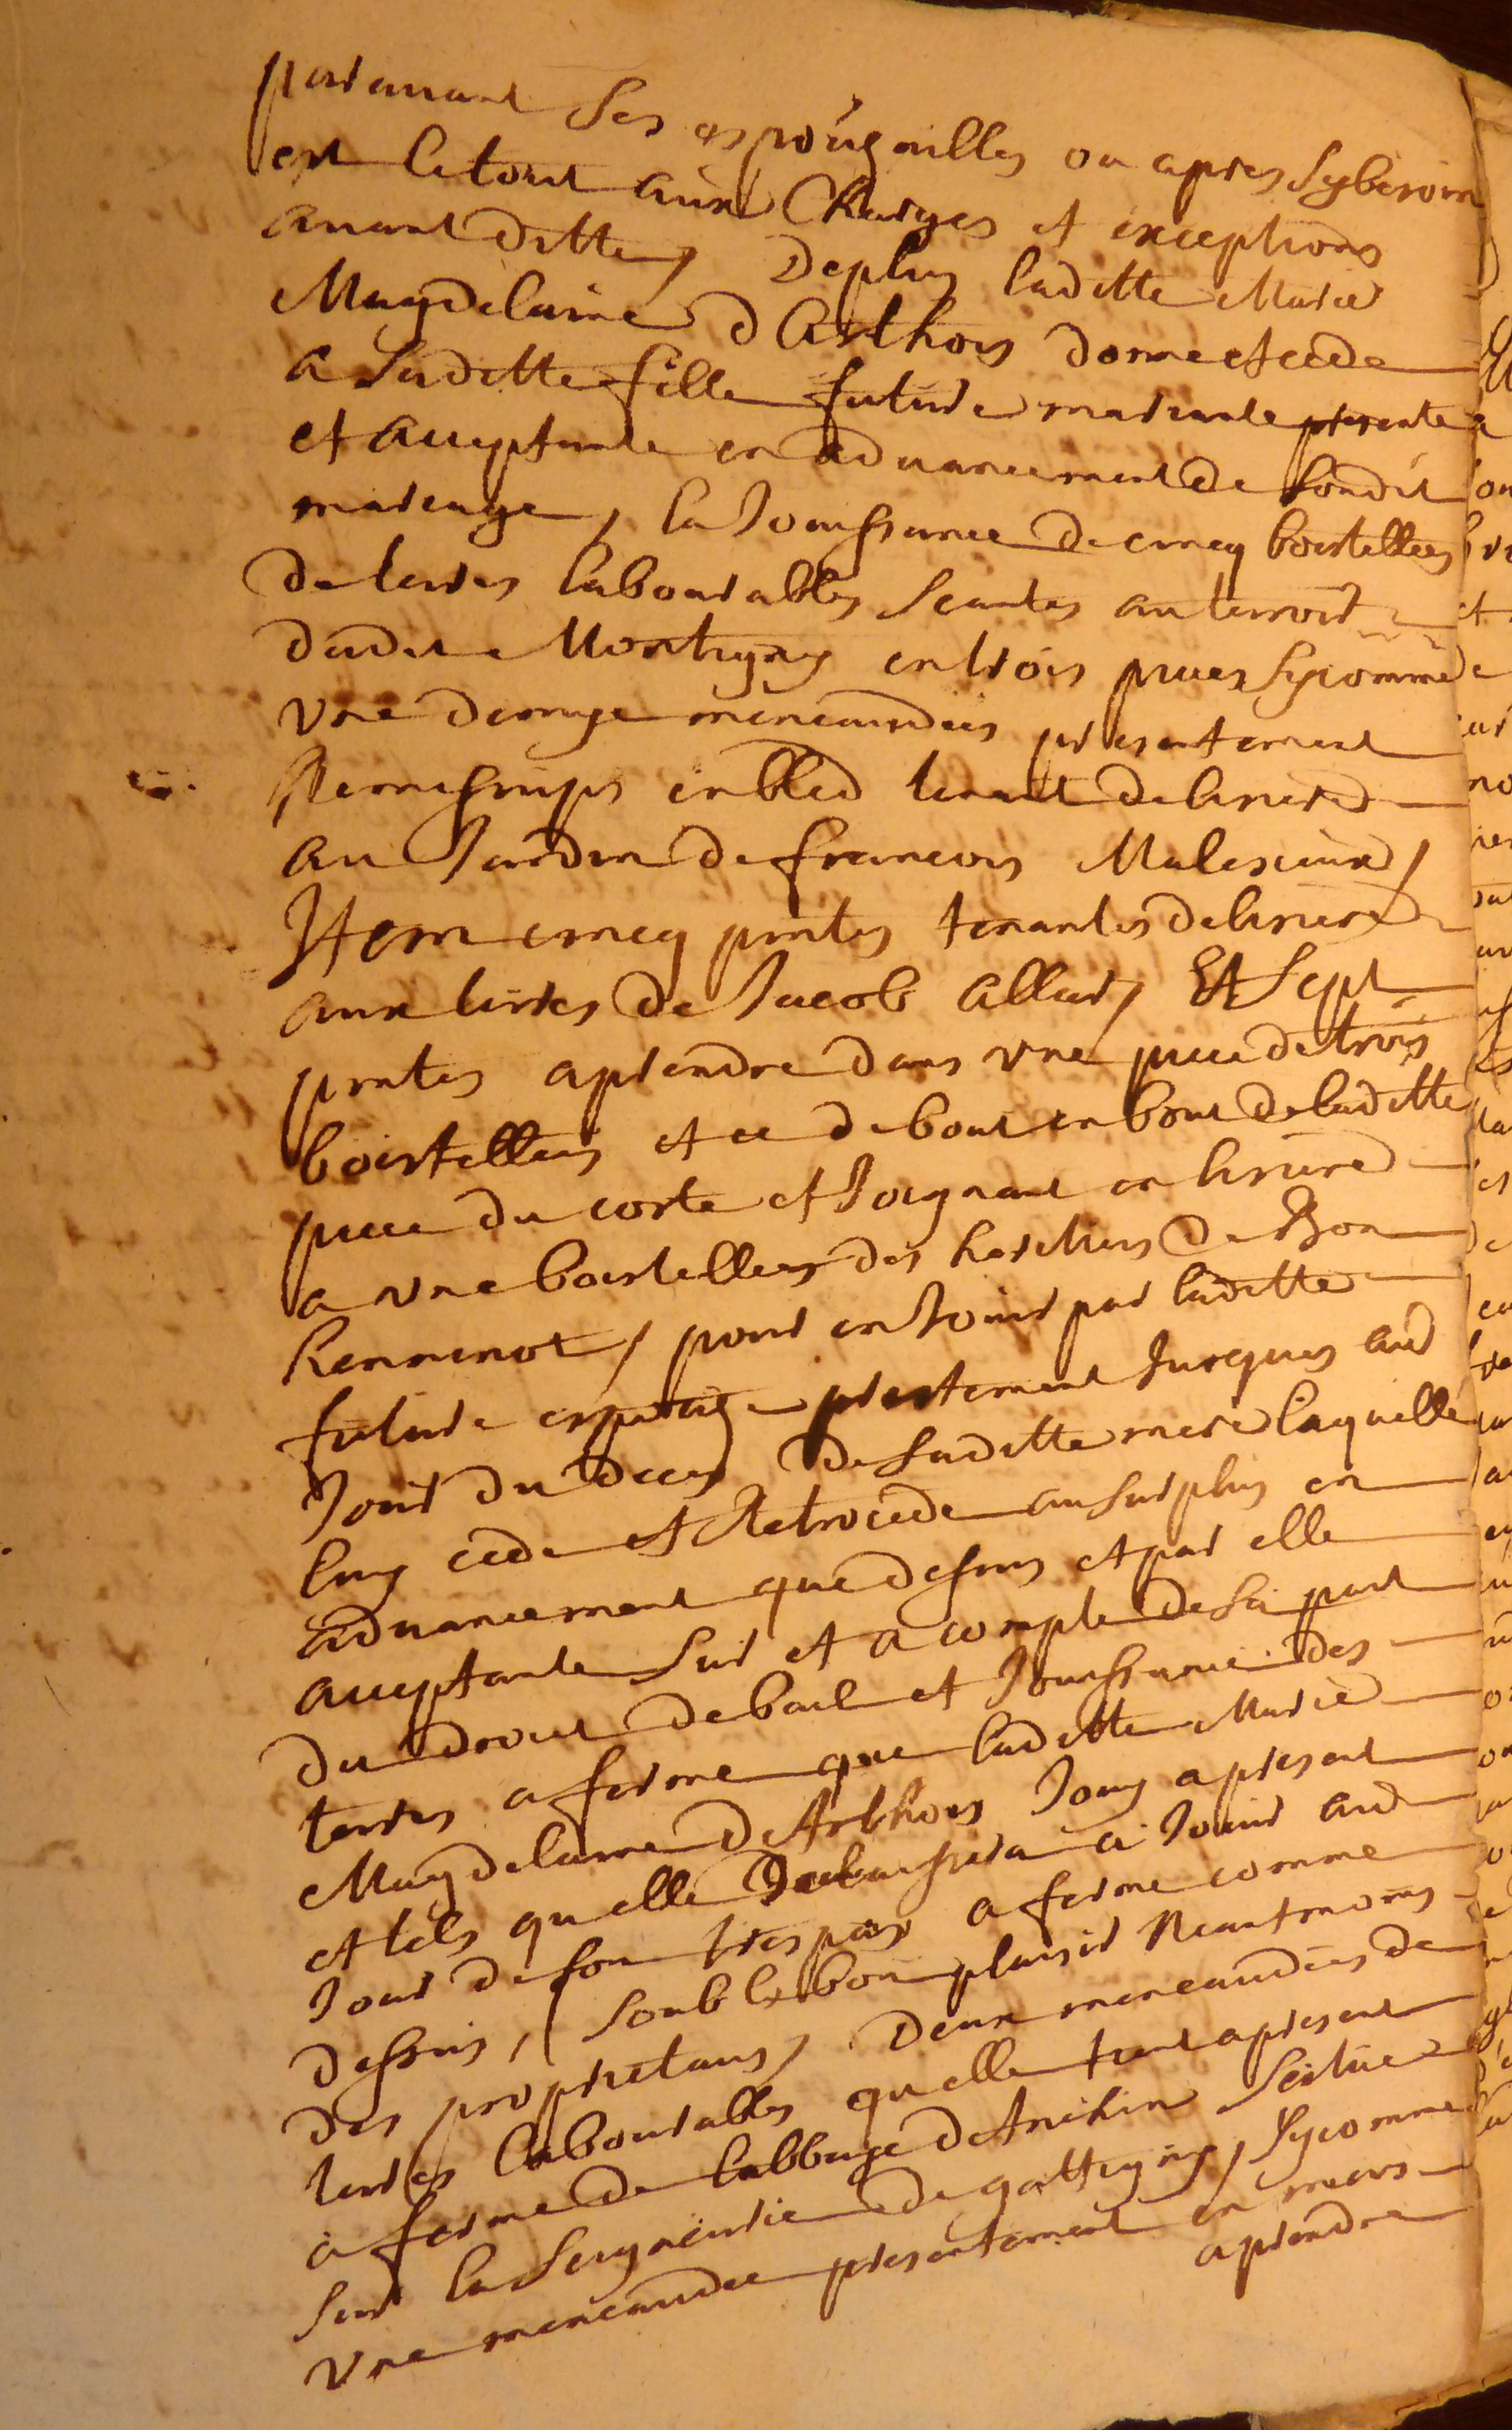 paravant ses espougailles ou apres sy besoin
est le tout aux charges et exceptions
avant dittes, De plus laditte Marie
Magdelaine d'Arthois donne et cede
a saditte fille future mariante presente
et acceptante en advancement de sondit
mariage, la Jouissance de cincq boistellees
de terres labourables seantes au terroir
dudit Montigny en trois pieces sycomme
une demye mencaudées presentement
en bled tenant de lisiere
au Jardin de francois Malesieux,
Item cincq pintes tenantes de lisiere
aux terres de Jacob Allart, Et sept
pintes a prendre dans une piece de trois
boistellees et ce de bout en bout de laditte
piece du coste et Joignant en lisiere
a une boistellees des heritiers de Bon
Henninot, pour en Jouir par laditte
future espouse prestement Jusques au
Jour du deces de saditte mere laquelle
luy cede et Retrocede au surplus en
advancement que dessus et par elle
acceptante sur et a compte de sa part
du droict de bail et Jouissance des
terres a ferme que laditte Marie
Magdelaine D'Arthois Jouy a present
et tels qu'elle delaissera a Jouir au
Jour de son trespas a ferme comme
dessus, soub le bon plaisir Neantmoins
des proprietairs, Deux mencaudées de
terres labourables qu'elle tient a present
a ferme de l'abbaye d'Anchin scitué
sur la Seigneurie de gattigny, sycomme
une mencaudee presentement en mars
a prendre